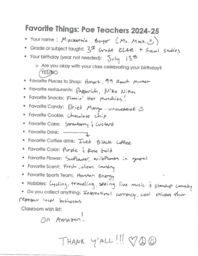 Favorite Things: Poe Teachers 2024-25
• Your name: Mackenzie
• Grade or subject taught: 3rd Grade ELAR + Social Studies
• Your birthday (year not needed): July 13th
o Are you okay with your class celebrating your birthday?
YES/NO
• Favorite Places to Shop: Amazon,
• Favorite restaurants: Niko Nikos
• Favorite Snacks: Flamin' Hot Munchies!
• Favorite Candy: Dried Mango - unsweetened
• Favorite Cookie: chocolate chip
• Favorite Cake:
• Favorite Drink:
• Favorite Coffee drink: Iced Black Coffee
• Favorite Color: Purple & Rose Gold
• Favorite Flower: Sunflower, wildflowers in general
• Favorite Scent: Fresh, clean laundry
• Favorite Sports Team: Houston
• Hobbies: Cycling, traveling, seeing live music & standup comedy
• Do you collect anything: International currency, cool
Classroom wish list:
On Amazon!
THANK Y'ALL!!! ♡☮☺